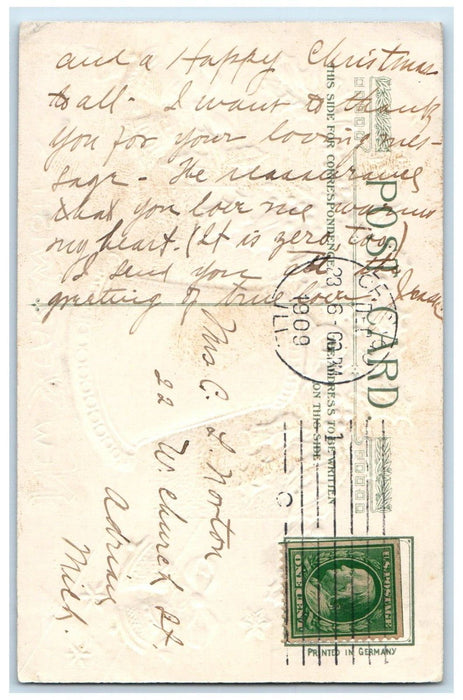 and a Happy Christmas
to all - I want to thank
you for your loving mes-
sage - The reassurance
that you love me warms
my heart. (It is zero, too)
I send you all the
greeting of true love
POST CARD
THIS SIDE FOR CORRESPONDENCE
THE ADDRESS TO BE WRITTEN
ON THIS SIDE
Mrs C. L. Norton
22 W. Church St.
Adrian
Mich.
DEC 23
1909
ILL.
1
C
U.S. POSTAGE
ONE CENT
PRINTED IN GERMANY